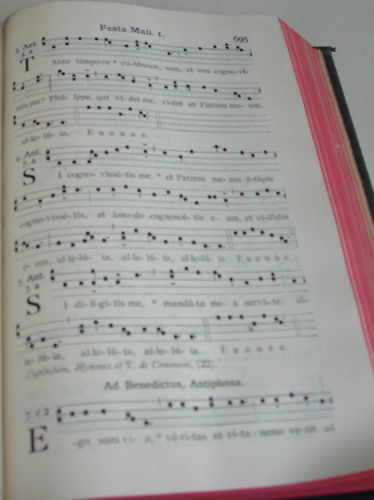 Festa Maii. 1. 695
3. Ant.
3. a
T Anto témpore * vobíscum, sum, et non cognoví-
stis me? Philíppe, qui videt me, videt et Patrem me- um,
al-le- lú- ia. E u o u a e.
4. Ant.
7. a
S I cogno- vissé-tis me, * et Patrem me- um útique
cogno-vissé-tis, et ámodo cognoscé-tis e- um, et vi-dístis
e- um, al-le-lú- ia, al-le- lú- ia, al-le-lú- ia. E u o u a e.
5. Ant.
3. a
S I di- li-gi-tis me, * mandá-ta me- a servá-te, al-
le- lú- ia, al-le- lú- ia, al-le- lú- ia. E u o u a e.
Capitulum, Hymnus et V. de Communi, [22].
Ad Benedictus, Antiphona.
7. c 2
E -go sum vi- a, * vé-ri-tas et vi-ta: nemo ve-nit ad